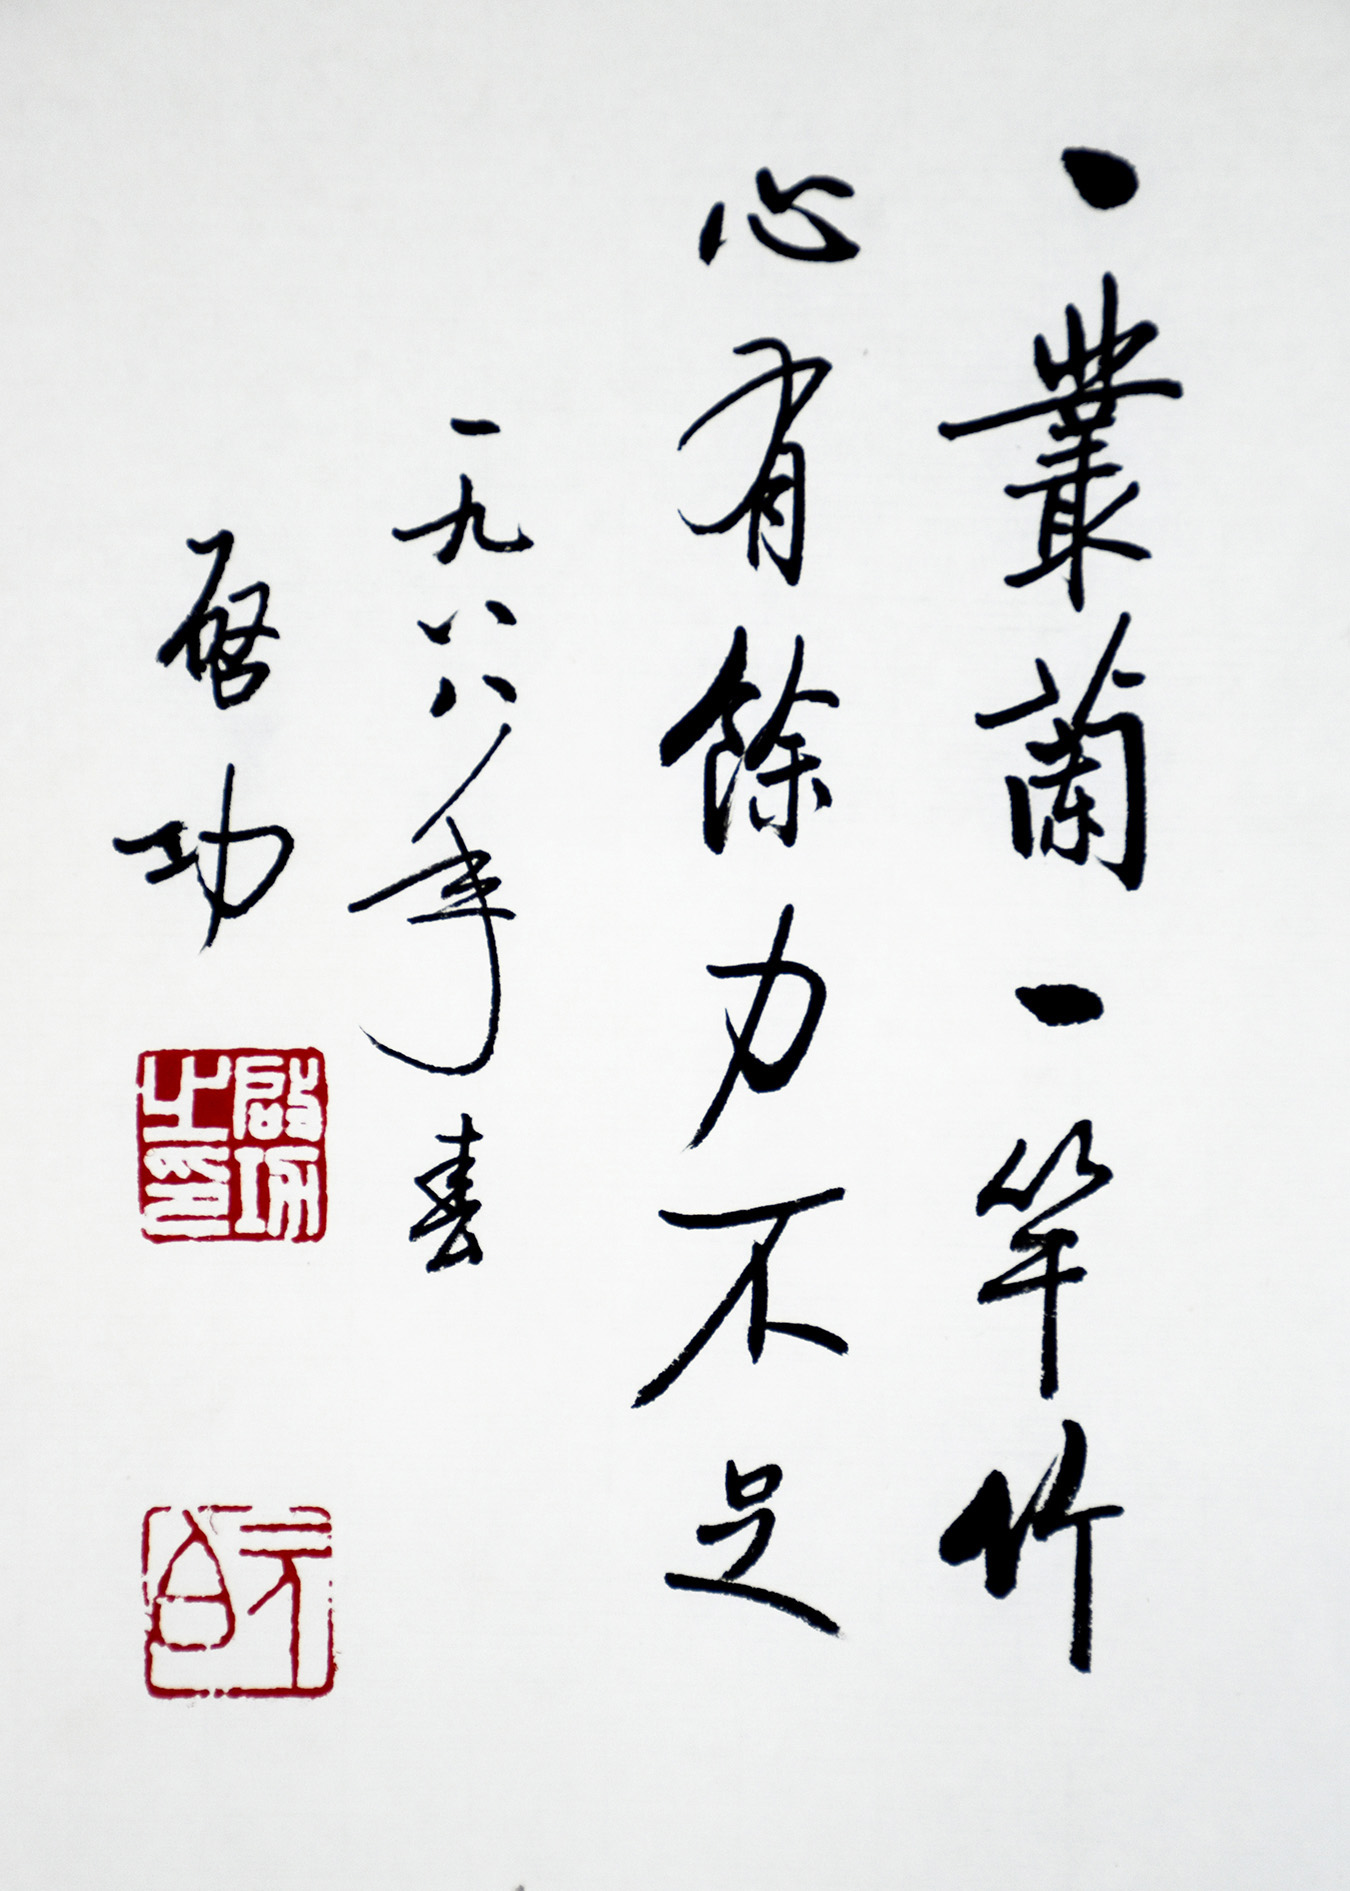 一叢蘭一竿竹
心有餘力不足
一九八八年春
啓功
啟功之印
元白